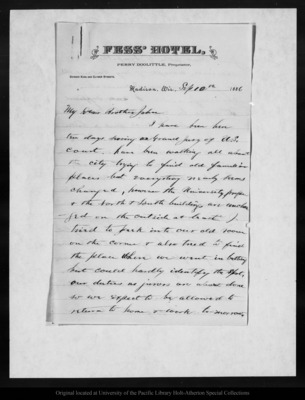 FESS' HOTEL,
PERRY DOOLITTLE, Proprietor.
Madison, Wis. Sep 10th 1886
My Dear Brother John
I have been here
ten days serving as Grand jury of U.S.
court. have been walking all around
the city trying to find old familiar
places but everything nearly seems
changed, however the University proper
& the North & South buildings are unchan
ged on the outside at least I
tried to peek into our old room
on the corner & also tried to find
the place where we went in bathing
but could hardly identify the spot,
our duties as jurors are about done
so we expect to be allowed to
return to home & work to morrow
Original located at University of the Pacific Library Holt-Atherton Special Collections